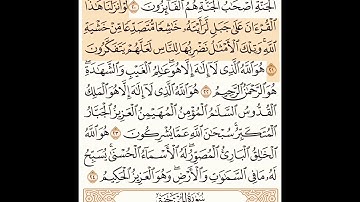 ٱلْجَنَّةِ أَصْحَٰبُ ٱلْجَنَّةِ هُمُ ٱلْفَآئِزُونَ ٢٠ لَوْ أَنزَلْنَا هَٰذَا
ٱلْقُرْءَانَ عَلَىٰ جَبَلٍ لَّرَأَيْتَهُۥ خَٰشِعًا مُّتَصَدِّعًا مِّنْ خَشْيَةِ
ٱللَّهِ ۚ وَتِلْكَ ٱلْأَمْثَٰلُ نَضْرِبُهَا لِلنَّاسِ لَعَلَّهُمْ يَتَفَكَّرُونَ
٢١ هُوَ ٱللَّهُ ٱلَّذِى لَآ إِلَٰهَ إِلَّا هُوَ ۖ عَٰلِمُ ٱلْغَيْبِ وَٱلشَّهَٰدَةِ ۖ
هُوَ ٱلرَّحْمَٰنُ ٱلرَّحِيمُ ٢٢ هُوَ ٱللَّهُ ٱلَّذِى لَآ إِلَٰهَ إِلَّا هُوَ ٱلْمَلِكُ
ٱلْقُدُّوسُ ٱلسَّلَٰمُ ٱلْمُؤْمِنُ ٱلْمُهَيْمِنُ ٱلْعَزِيزُ ٱلْجَبَّارُ
ٱلْمُتَكَبِّرُ ۚ سُبْحَٰنَ ٱللَّهِ عَمَّا يُشْرِكُونَ ٢٣ هُوَ ٱللَّهُ
ٱلْخَٰلِقُ ٱلْبَارِئُ ٱلْمُصَوِّرُ ۖ لَهُ ٱلْأَسْمَآءُ ٱلْحُسْنَىٰ ۚ يُسَبِّحُ
لَهُۥ مَا فِى ٱلسَّمَٰوَٰتِ وَٱلْأَرْضِ ۖ وَهُوَ ٱلْعَزِيزُ ٱلْحَكِيمُ ٢٤
سُورَةُ ٱلْمُمْتَحَنَةِ